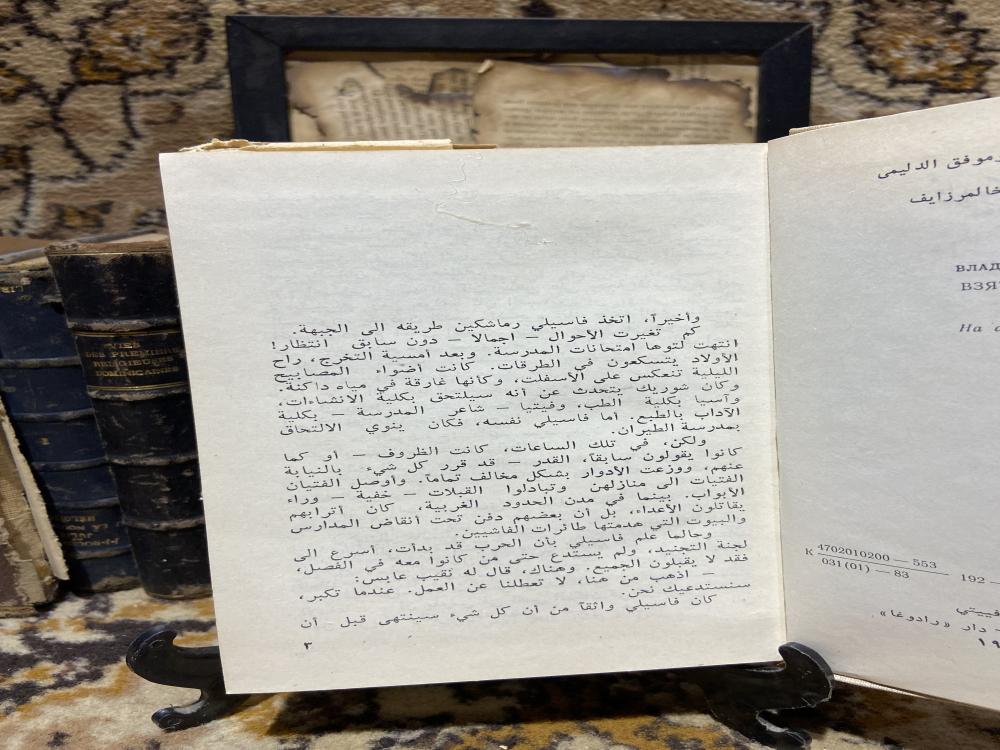 وأخيرآ، اتخذ فاسيلي رماشكين طريقه الى الجبهة.
كم تغيرت الأحوال – اجمالا – دون سابق انتظار!
انتهت لتوها امتحانات المدرسة. وبعد امسية التخرج، راح
الأولاد يتسكعون في الطرقات. كانت اضواء المصابيح
الليلية تنعكس على الأسفلت، وكأنها غارقة في مياه داكنة.
وكان شوريك يتحدث عن أنه سيلتحق بكلية الانشاءات،
وآسيا بكلية الطب، وفيتيا – شاعر المدرسة – بكلية
الآداب بالطبع. أما فاسيلي نفسه، فكان ينوي الالتحاق
بمدرسة الطيران.
ولكن، في تلك الساعات، كانت الظروف – او كما
كانوا يقولون سابقآ، القدر – قد قرر كل شيء بالنيابة
عنهم، ووزعت الأدوار بشكل مخالف تمامآ. وأوصل الفتيان
الفتيات الى منازلهن وتبادلوا القبلات – خفية – وراء
الأبواب. بينما في مدن الحدود الغربية، كان أترابهم
يقاتلون الأعداء، بل أن بعضهم دفن تحت أنقاض المدارس
والبيوت التي هدمتها طائرات الفاشيين.
وحالما علم فاسيلي بأن الحرب قد بدأت، أسرع الى
لجنة التجنيد، ولم يستدع حتى من كانوا معه في الفصل،
فقد لا يقبلون الجميع. وهناك، قال له نقيب عابس:
– اذهب من هنا، لا تعطلنا عن العمل. عندما تكبر،
سنستدعيك نحن.
كان فاسيلي واثقآ من أن كل شيء سينتهي قبل أن
٣
وموفق الدليمي
خالمرزايف
ВЛАД
ВЗЯ
На
К 4702010200 — 553
031 (01) — 83
192 —
فييتي
دار «رادوغا»
١٩
VIES
DES PREMIÈRES
RELIGIEUSES
DOMINICAINES